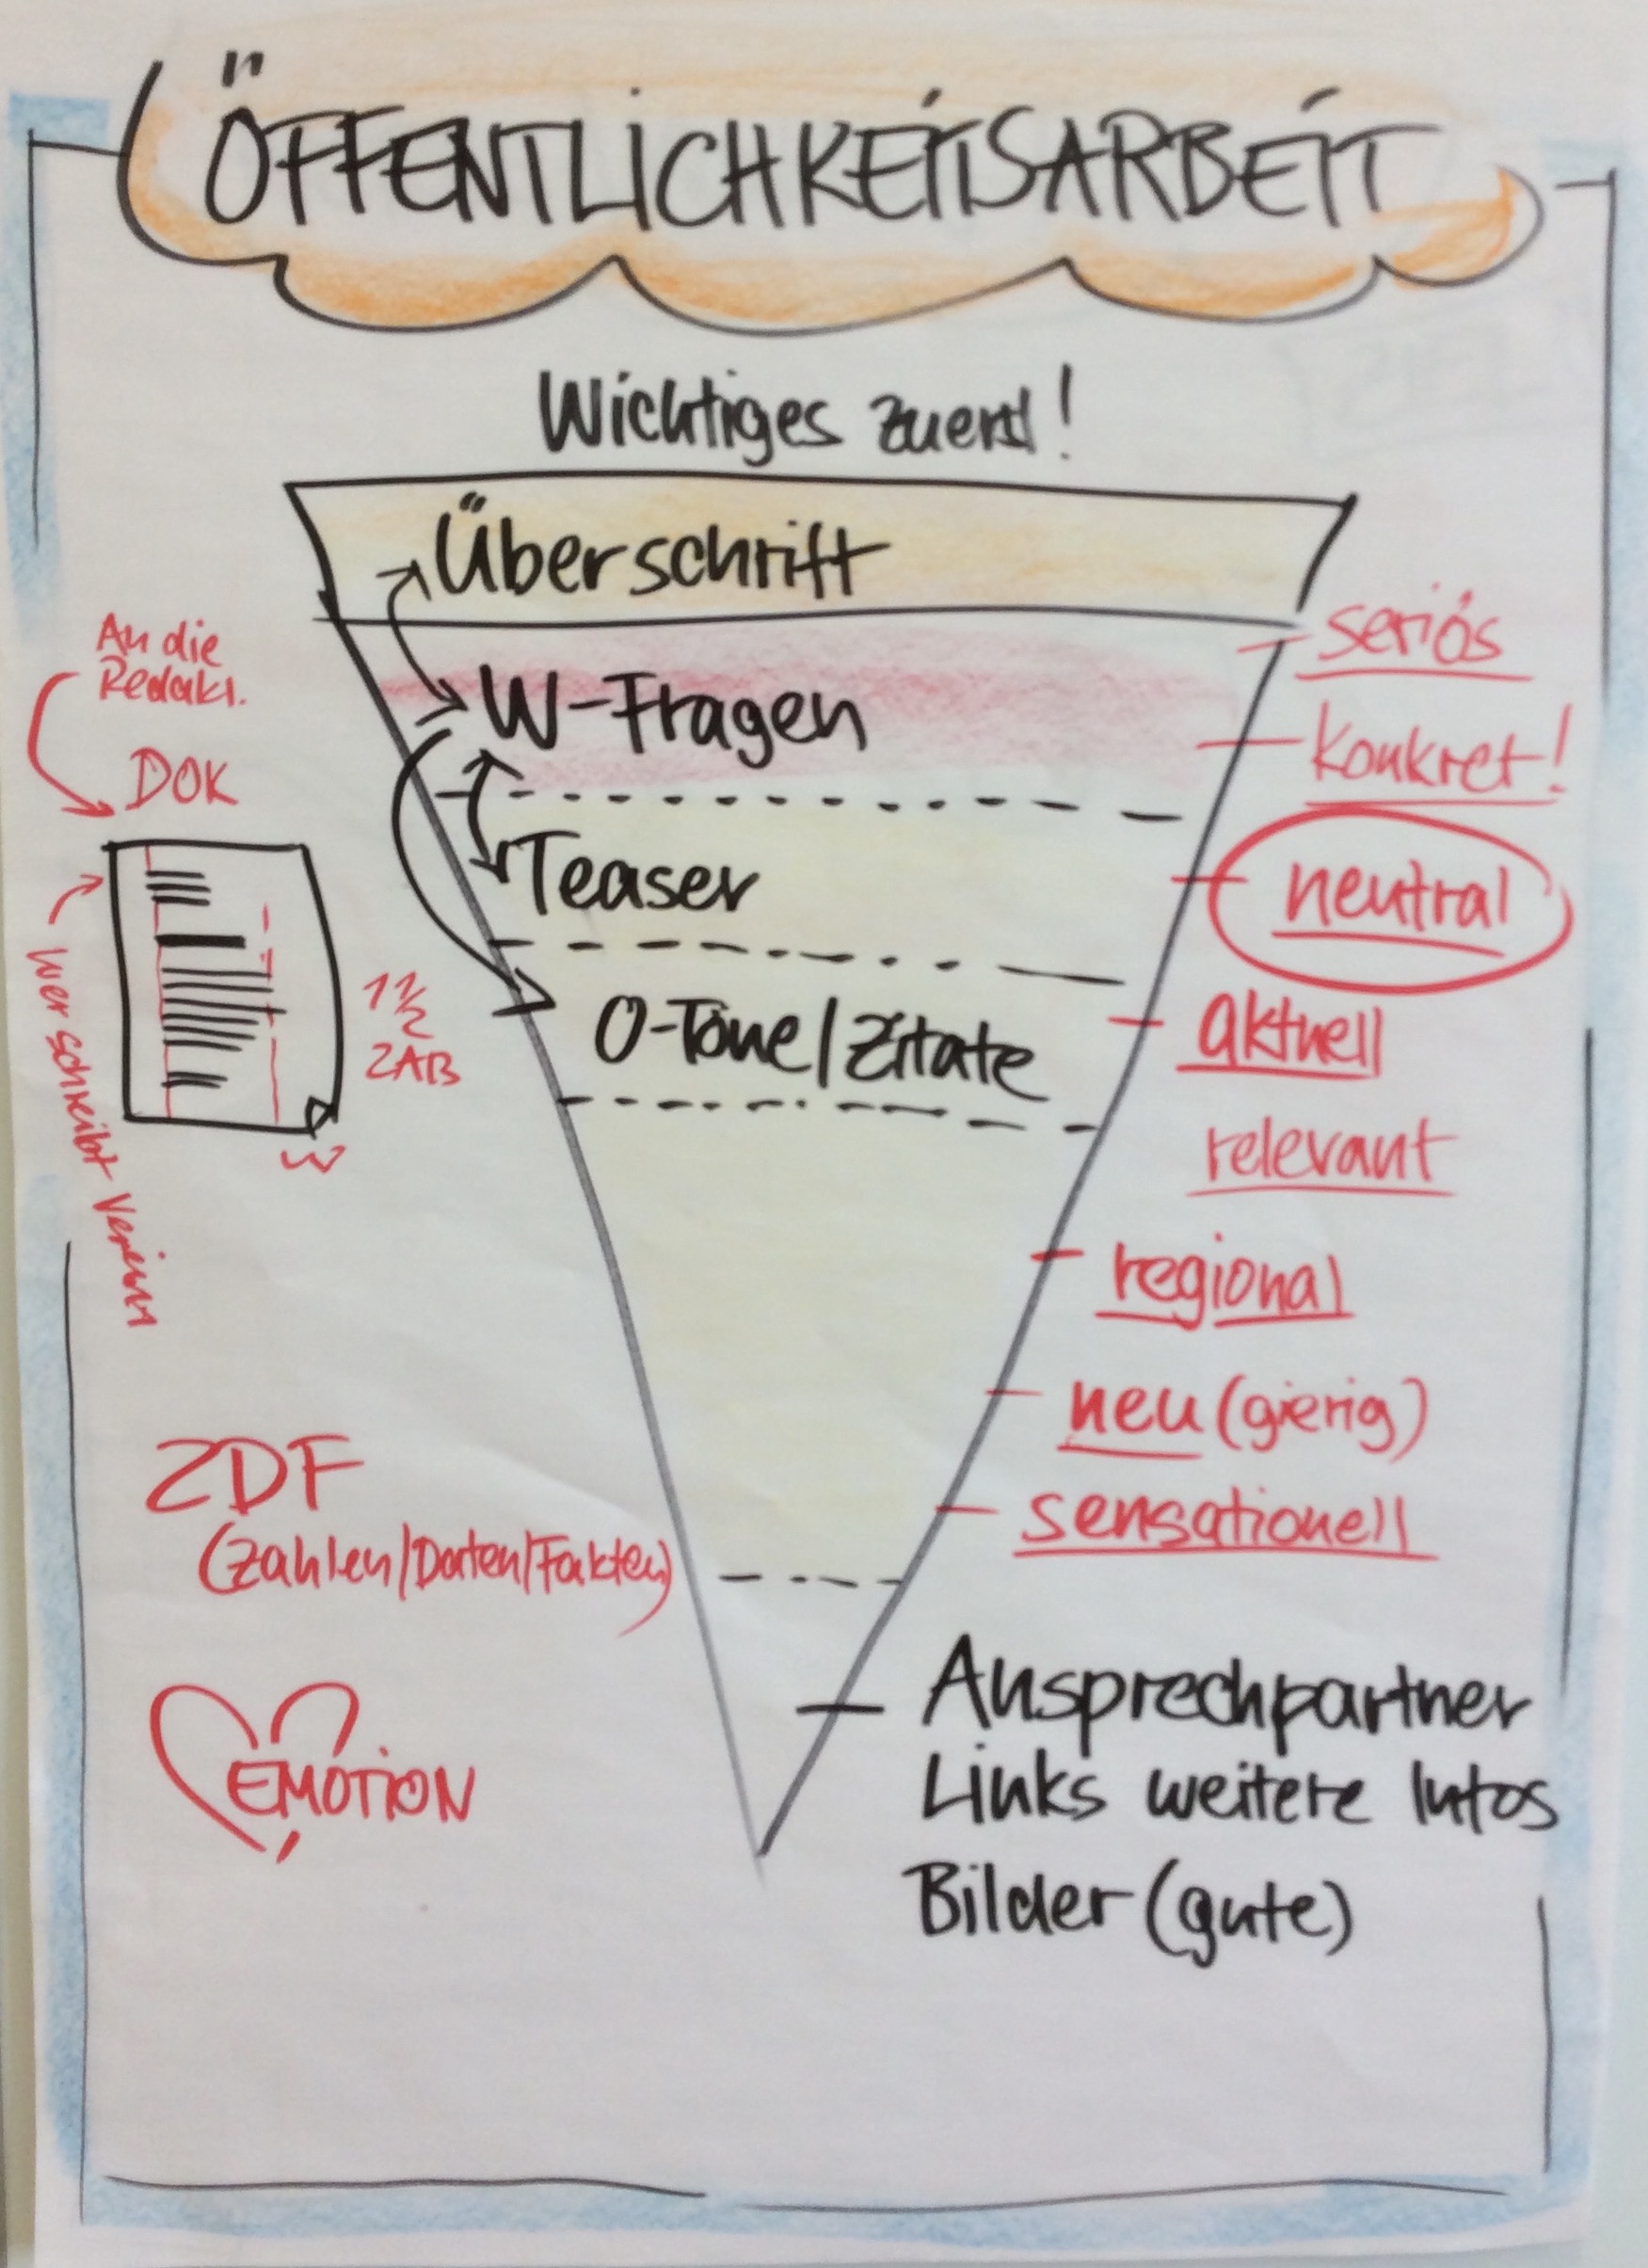 ÖFFENTLICHKEITSARBEIT
Wichtiges zuerst!
Überschrift
W-Fragen
Teaser
O-Töne/Zitate
An die
Redakt.
DOK
1 1/2
ZAB
wer schreibt Verein
ZDF
(Zahlen/Daten/Fakten)
EMOTION
seriös
konkret!
neutral
aktuell
relevant
regional
neu (gierig)
sensationell
Ansprechpartner
Links weitere Infos
Bilder (gute)